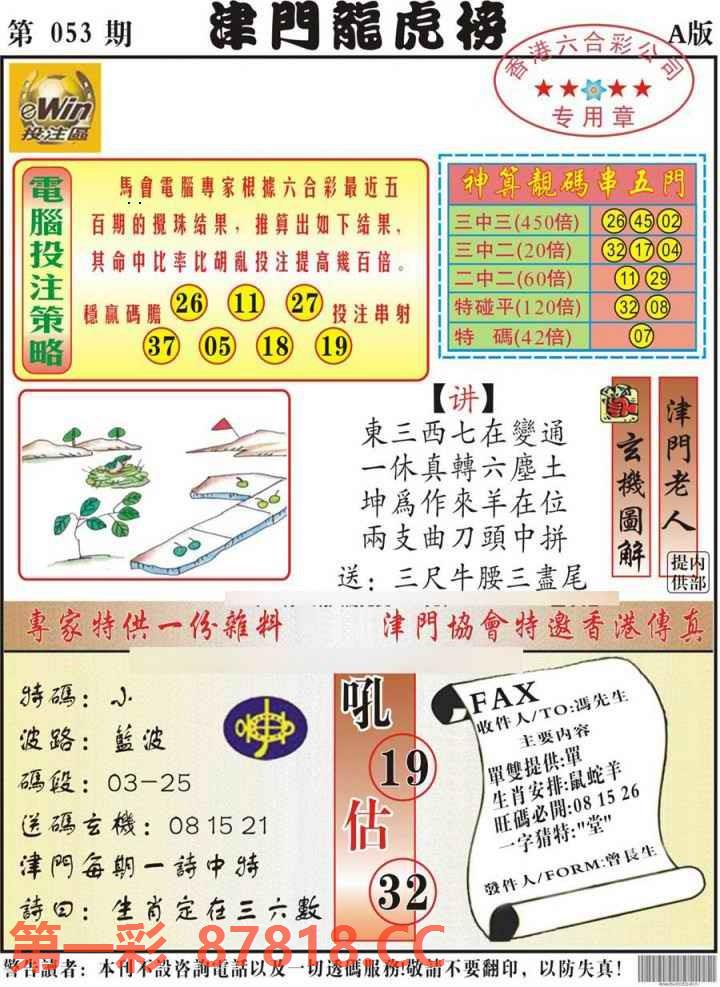 第 053 期
津門龍虎榜
A版
香港六合彩公司
专用章
eWin
投注區
電腦投注策略
馬會電腦專家根據六合彩最近五
百期的攪珠结果，推算出如下结果，
其命中比率比胡亂投注提高幾百倍。
穩贏碼膽 26 11 27 投注串射
37 05 18 19
神算靚碼串五門
三中三(450倍) 26 45 02
三中二(20倍) 32 17 04
二中二(60倍) 11 29
特碰平(120倍) 32 08
特 碼(42倍) 07
【讲】
東三西七在變通
一休真轉六塵土
坤爲作來羊在位
兩支曲刀頭中拼
送：三尺牛腰三盡尾
玄機圖解
津門老人
内部提供
專家特供一份雜料
津門協會特邀香港傳真
特碼：小
波路：藍波
碼段：03－25
送碼玄機：08 15 21
津門每期一詩中特
詩曰：生肖定在三六數
吼
19
估
32
FAX
收件人/TO:馮先生
主要内容
單雙提供:單
生肖安排:鼠蛇羊
旺碼必開:08 15 26
一字猜特:"堂"
發件人/FORM:曾長生
第一彩 87818.CC
警告讀者：本刊不設咨詢電話以及一切透碼服務!敬請不要翻印，以防失真!